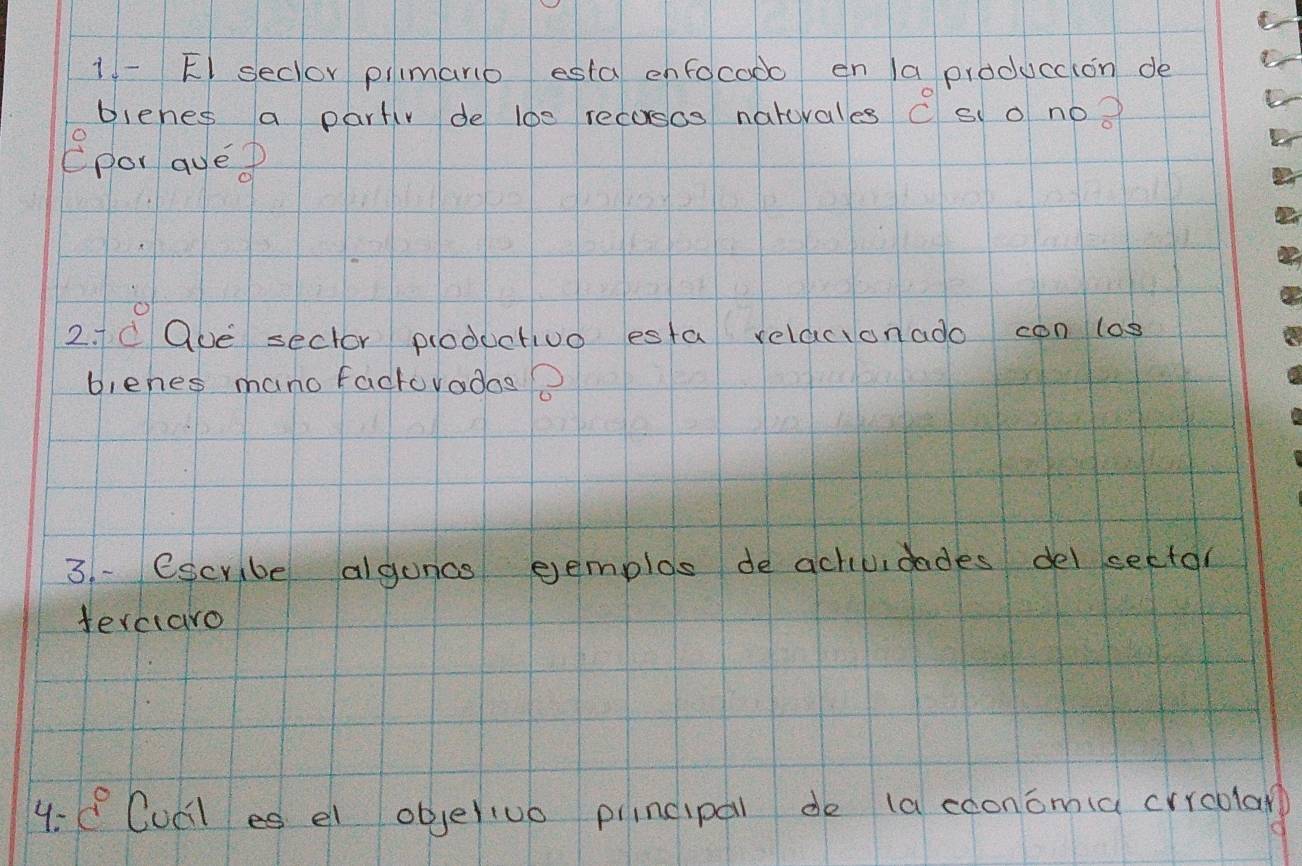 1.- El sector primario esta enfocado en la producción de
bienes a partir de los recursos naturales ¿ si o no?
¿por qué?
2.- ¿ Qué sector productivo esta relacionado con los
bienes mano facturados?
3.- Escribe algunos ejemplos de actividades del sector
terciaro
4.- ¿ Cuál es el objetivo principal de la económia circular?